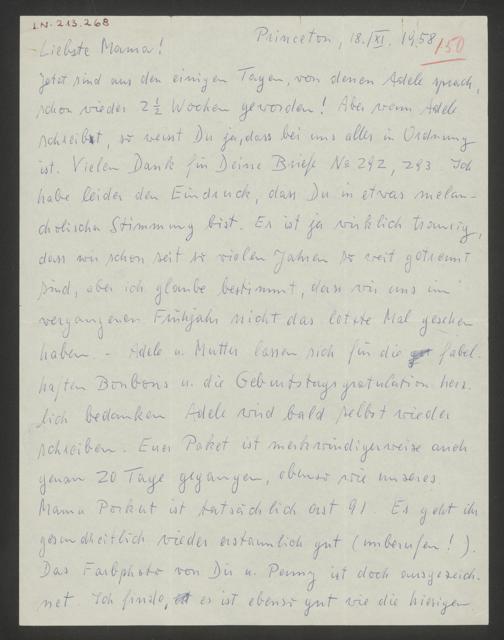 I.N. 213.268
Princeton, 18./XI. 1958
150
Liebste Mama!
Jetzt sind aus den einigen Tagen, von denen Adele sprach,
schon wieder 2½ Wochen geworden! Aber wenn Adele
schreibt, so weisst Du ja, dass bei uns alles in Ordnung
ist. Vielen Dank für Deine Briefe No 292, 293 Ich
habe leider den Eindruck, dass Du in etwas melan-
cholischer Stimmung bist. Es ist ja wirklich traurig,
dass wir schon seit so vielen Jahren so weit getrennt
sind, aber ich glaube bestimmt, dass wir uns im
vergangenen Frühjahr nicht das letzte Mal gesehen
haben. - Adele u. Mutter lassen sich für die fabel-
haften Bonbons u. die Geburtstagsgratulation herz-
lich bedanken Adele wird bald selbst wieder
schreiben. Euer Paket ist merkwürdigerweise auch
genau 20 Tage gegangen, ebenso wie unseres
Mama Porkert ist tatsächlich erst 91. Es geht ihr
gesundheitlich wieder erstaunlich gut (unberufen!).
Das Farbphoto von Dir u. Penny ist doch ausgezeich-
net. Ich finde, es ist ebenso gut wie die hiesigen